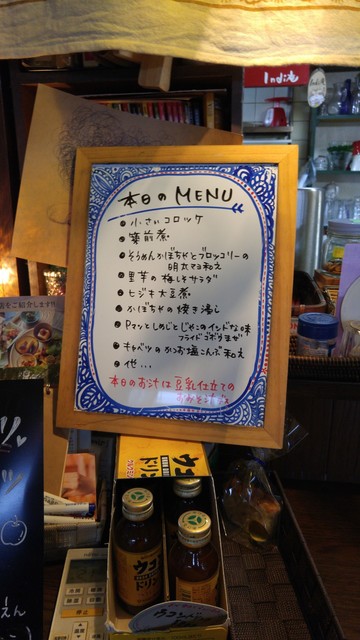 Indik
本日の MENU
小さいコロッケ
筑前煮
そうめんかぼちゃとブロッコリーの
明太マヨ和え
里芋の梅しそサラダ
ヒジキ大豆煮
かぼちゃの焼き浸し
Pマンとしめじとじゃこのインドな味
フライドゴボウまぜ
キャベツのかつお塩こんぶ和え
他...
本日のお汁は豆乳仕立ての
店をご紹介します!!
ウコン
ドリンク